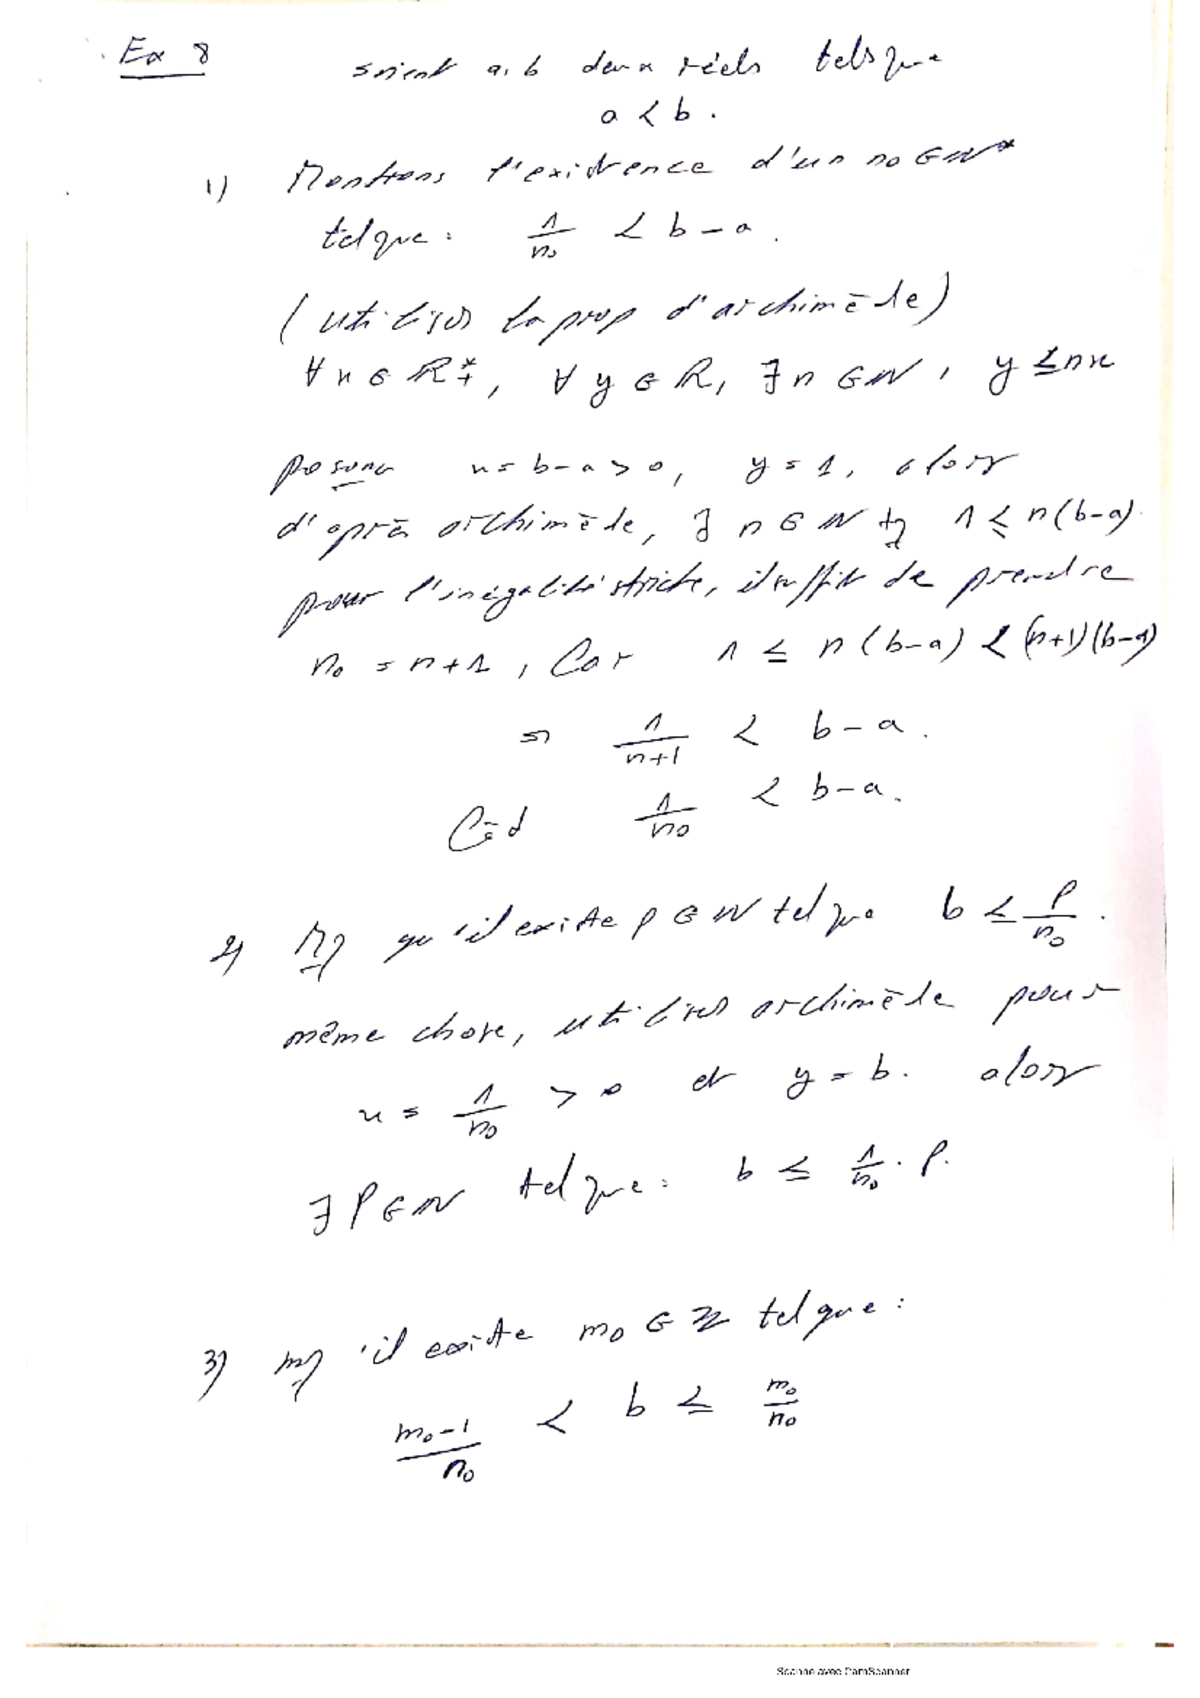 Ex 8 soient a, b deux réels tels que
a < b.
1) Montrons l'existence d'un n₀ ∈ ℕ*
tel que : 1/n₀ < b - a.
(utiliser la prop d'archimède)
∀ x ∈ ℝ*₊, ∀ y ∈ ℝ, ∃ n ∈ ℕ, y ≤ nx
posons x = b - a > 0, y = 1, alors
d'après archimède, ∃ n ∈ ℕ tq 1 ≤ n(b-a).
pour l'inégalité stricte, il suffit de prendre
n₀ = n+1, Car 1 ≤ n(b-a) < (n+1)(b-a)
⇒ 1/(n+1) < b - a.
Càd 1/n₀ < b - a.
2) Mq qu'il existe p ∈ ℕ tel que b ≤ p/n₀.
même chose, utiliser archimède pour
x = 1/n₀ > 0 et y = b. alors
∃ p ∈ ℕ tel que : b ≤ 1/n₀ . p.
3) mq 'il existe m₀ ∈ ℤ tel que :
(m₀-1)/n₀ < b ≤ m₀/n₀
Scanné avec CamScanner